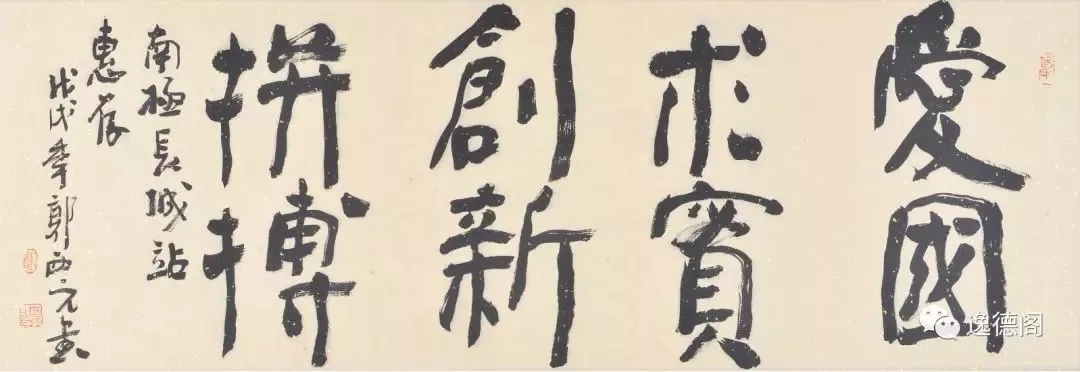 愛國
求實
創新
拼搏
南極長城站
惠存
戊戌年郭西元書
逸德阁